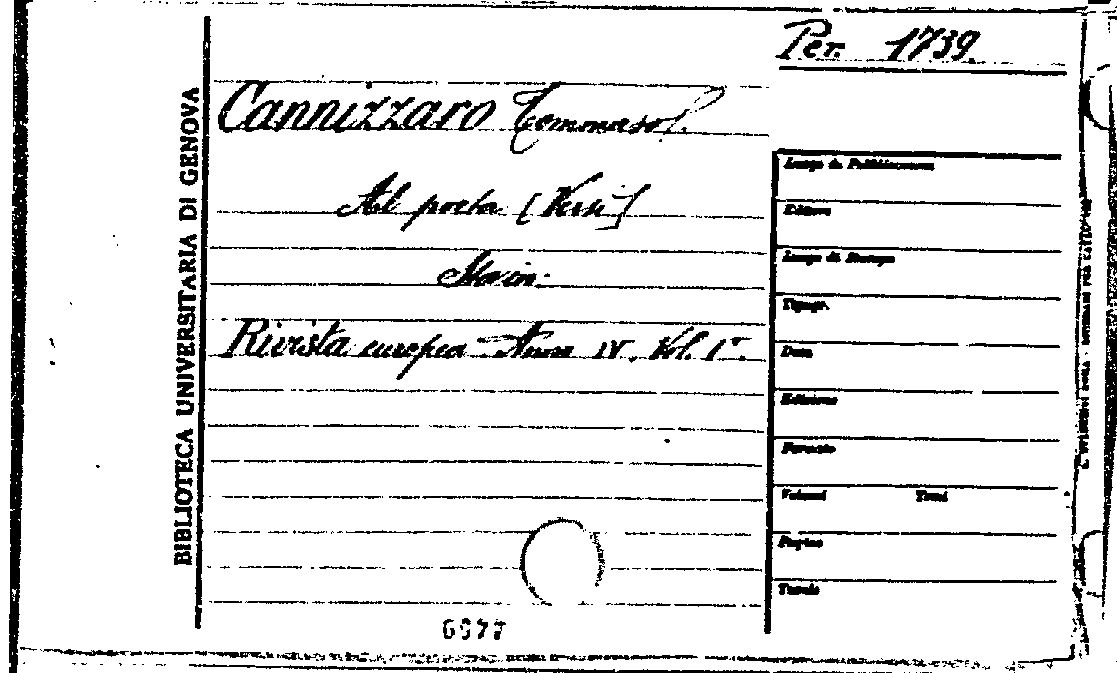 Per. 1739.
Cannizzaro Tommaso.
Al poeta [Versi]
Rivista europea - Anno IV. Vol. I°.
BIBLIOTECA UNIVERSITARIA DI GENOVA
Luogo di Pubblicazione
Editore
Luogo di Stampa
Tipogr.
Data
Edizione
Formato
Volumi Tomi
Pagine
Tavole
6977